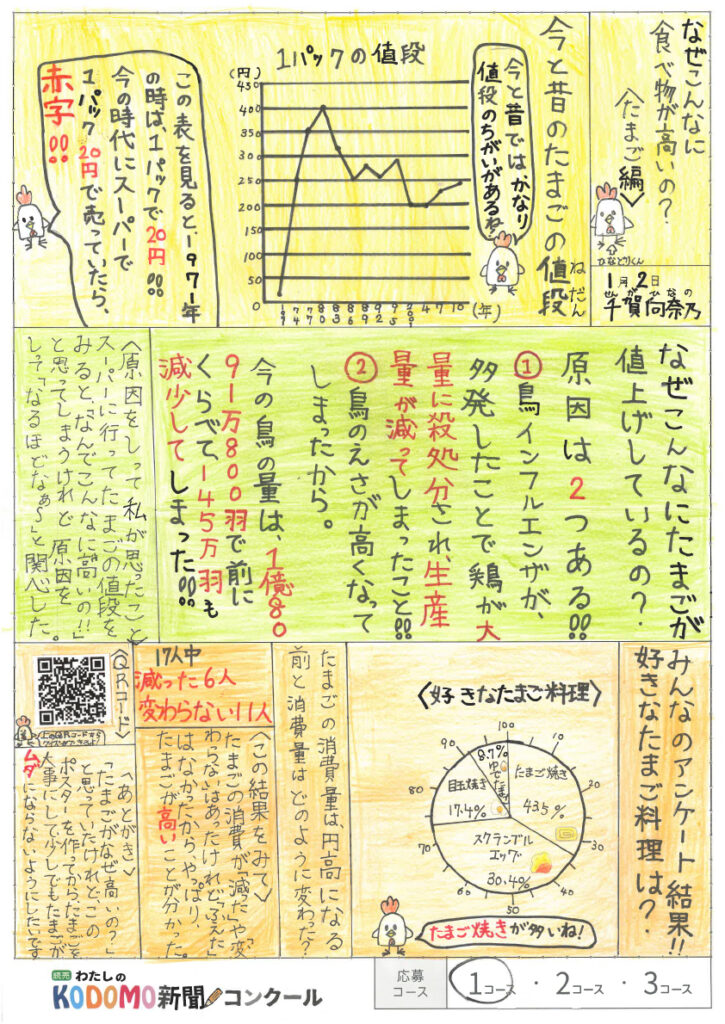 なぜこんなに
食べ物が高いの？
〈たまご編〉
ひなどりくん
1月2日
せんがひなの
千賀向奈乃
今と昔のたまごの値段
ねだん
今と昔ではかなり
値段のちがいがあるね
1パックの値段
(円)
450
400
350
300
250
200
150
100
50
0
(年)
この表を見ると、1971年
の時は、1パックで20円!!
今の時代にスーパーで
1パック20円で売っていたら、
赤字!!
なぜこんなにたまごが
値上げしているの？
原因は2つある!!
①鳥インフルエンザが、
多発したことで鶏が大
量に殺処分され、生産
量が減ってしまったこと!!
②鳥のえさが高くなって
しまったから。
今の鳥の量は、1億80
91万800羽で前に
くらべて、145万羽も
減少してしまった!!
〈原因をしって私が思ったこと〉
スーパーに行ってたまごの値段を
みると、「なんでこんなに高いの!!」
と思ってしまうけれど、原因を
しって「なるほどなぁ〜」と関心した。
みんなのアンケート結果!!
好きなたまご料理は？
〈好きなたまご料理〉
100
10
20
30
40
50
60
70
80
90
たまご焼き
43.5%
スクランブル
エッグ
30.4%
目玉焼き
17.4%
8.7%
ゆでたまご
たまご焼きが多いね!
たまごの消費量は、円高になる
前と消費量はどのように変わった？
17人中
減った6人
変わらない11人
〈この結果をみて〉
たまごの消費が「減った」や「変
わらない」はあったけれど「ふえた」
はなかったから、やっぱり、
たまごが高いことが分かった。
〈QRコード〉
上のQRコードから
〈あとがき〉
「たまごがなぜ高いの？」
と思っていたけれど、この
ポスターを作ってから、たまごを
大事にして少しでもたまごが
ムダにならないようにしたいです
読売 わたしの
KODOMO新聞コンクール
応募
コース
1コース・2コース・3コース